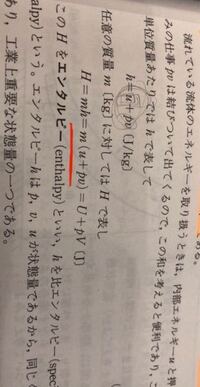 ある。
流れている流体のエネルギーを取り扱うときは, 内部エネルギー u と押
みの仕事 pv は結びついて出てくるので, この和を考えると便利であり, こ
単位質量あたりでは h で表して
h=u+pv (J/kg)
任意の質量 m [kg] に対しては H で表し
H=mh=m(u+pv)=U+pV (J)
この H をエンタルピー (enthalpy) といい, h を比エンタルピー (spec
alpy) という。エンタルピー h は p, v, u が状態量であるから, 同じ
あり, 工業上重要な状態量の一つである。